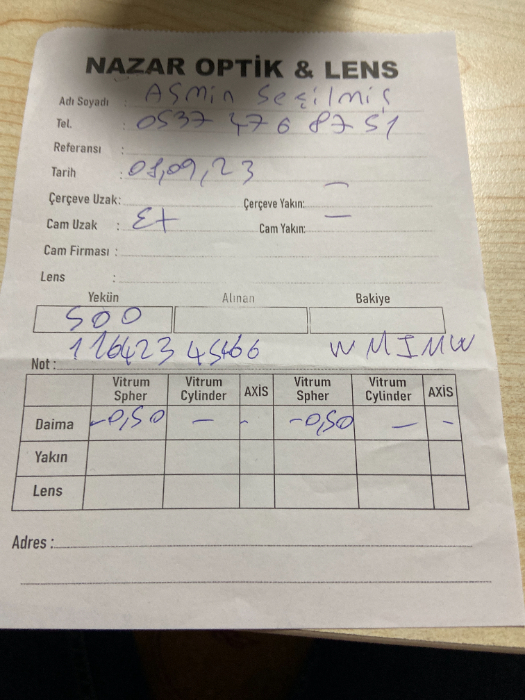 NAZAR OPTİK & LENS
Adı Soyadı : Asmin Seçilmiş
Tel. : 0537 476 8751
Referansı :
Tarih : 01,09,23
Çerçeve Uzak: Çerçeve Yakın: —
Cam Uzak : Ex Cam Yakın: —
Cam Firması :
Lens :
Yekün Alınan Bakiye
500
Not : 11642345466 WMIMW
Vitrum Spher Vitrum Cylinder AXİS Vitrum Spher Vitrum Cylinder AXİS
Daima -0,50 — - -0,50 — -
Yakın
Lens
Adres :